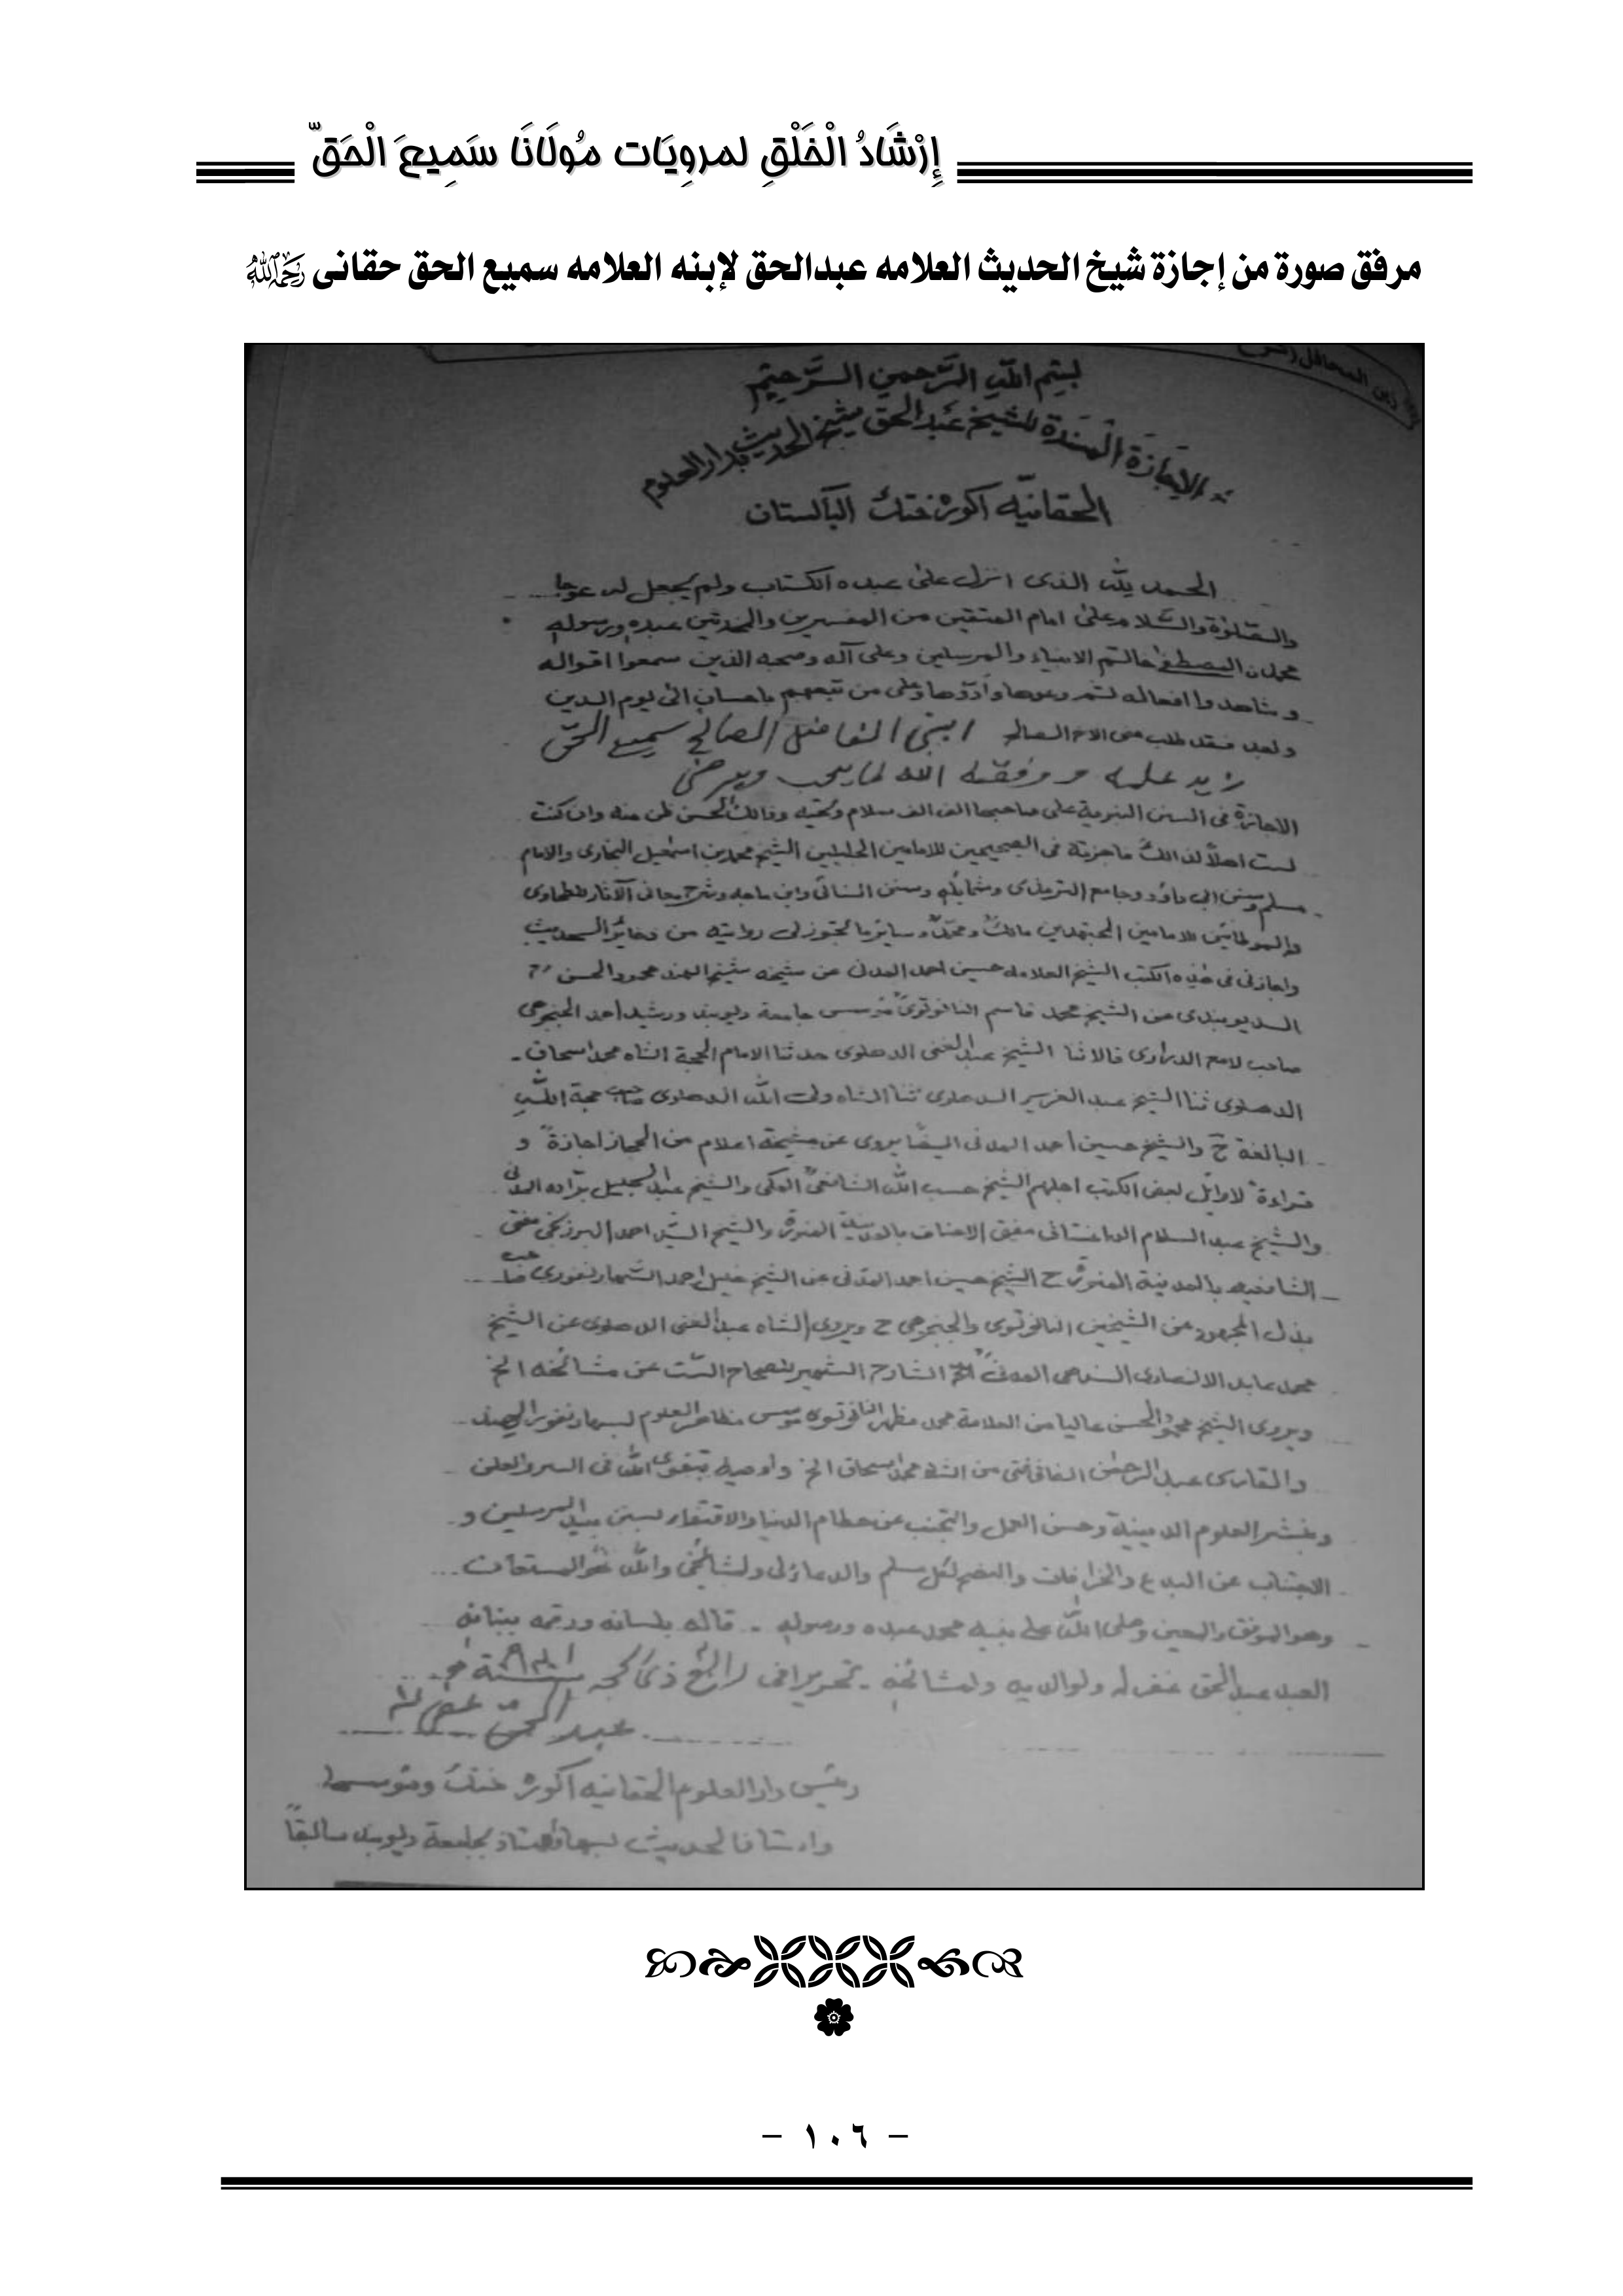 إِرْشَادُ الْخَلْقِ لمروِيَات مُولَانَا سَمِيعَ الْحَقّ
مرفق صورة من إجازة شيخ الحديث العلامه عبدالحق لإبنه العلامه سميع الحق حقانى رحمه الله
زين المحافل
بسم الله الرحمن الرحيم
الاجازة المسندة للشيخ عبد الحق شيخ الحديث بدار العلوم
الحقانيه اكوره ختك الباكستان
الحمد لله الذى انزل على عبده الكتاب ولم يجعل له عوجا
والصلوٰة والسلام على امام المتقين من المفسرين والمحدثين عبده ورسوله
محمدن المصطفىٰ خاتم الانبياء والمرسلين وعلى آله وصحبه الذين سمعوا اقواله
وشاهدوا افعاله ثم وعوها وأدّوها وعلى من تبعهم باحسان الى يوم الدين
وبعد فقد طلب منى الاخ الصالح ابنى الفاضل الصالح سميع الحق
زيد علمه ووفقه الله لما يحب ويرضى
الاجازة فى السنن النبوية على صاحبها الف الف سلام وتحية وذالك لحسن ظن منه وان كنت
لست اهلاً لذالك فاجزته فى الصحيحين للامامين الجليلين الشيخ محمد بن اسمٰعيل البخارى والامام
مسلم وسنن ابى داؤد وجامع الترمذى وشمائله وسنن النسائى وابن ماجه وشرح معانى الآثار للطحاوى
والموطائين للامامين المجتهدين مالك ومحمد وسائر ما تجوز لى روايته من ذخائر الحديث
واجازنى فى هٰذه الكتب الشيخ العلامه حسين احمد المدنى عن شيخه شيخ الهند محمود الحسن
الديوبندى عن الشيخ محمد قاسم النانوتوى مؤسس جامعة ديوبند ورشيد احمد الجنجوهى
صاحب لامع الدرارى قالا ثنا الشيخ عبد الغنى الدهلوى حدثنا الامام الحجة الشاه محمد اسحاق
الدهلوى ثنا الشيخ عبد العزيز الدهلوى ثنا الشاه ولى الله الدهلوى صاحب حجة الله
البالغة ح والشيخ حسين احمد المدنى ايضا يروى عن مشيخة اعلام من الحجاز اجازة و
قراءة لاوائل بعض الكتب اجلهم الشيخ حسب الله الشافعى المكى والشيخ عبد الجليل براده المدنى
والشيخ عبد السلام الداغستانى مفتى الاحناف بالمدينة المنورة والشيخ السيد احمد البرزنجى مفتى
الشافعيه بالمدينة المنورة ح الشيخ حسين احمد المدنى عن الشيخ خليل احمد السهارنفورى صاحب
بذل المجهود عن الشيخين النانوتوى والجنجوهى ح ويروى الشاه عبد الغنى الدهلوى عن الشيخ
محمد عابد الانصارى السندهى المدنى الشارح الشهير للصحاح الست عن مشائخه الخ
ويروى الشيخ محمود الحسن عاليا من العلامة محمد مظهر النانوتوى مؤسس مظاهر العلوم لسهارنفور الهند
والقارى عبد الرحمٰن الفانى فتى من الشاه محمد اسحاق الخ واوصيه بتقوى الله فى السر والعلن
وبنشر العلوم الدينية وحسن العمل والتجنب عن حطام الدنيا والاقتفاء لسنن سيد المرسلين و
الاجتناب عن البدع والخرافات والنصح لكل مسلم والدعاء لى ولمشائخى والله هو المستعان
وهو الموفق والمعين وصلى الله على نبيه محمد عبده ورسوله ۔ قاله بلسانه ورقمه ببنانه
العبد عبد الحق غفر له ولوالديه ولمشائخه ۔ تحريرا فى ذى الحجه
عبد الحق
رئيس دار العلوم الحقانيه اكوره ختك ومؤسسها
واستاذ الحديث بها واستاذ بجامعة ديوبند سابقاً
- ١٠٦ -